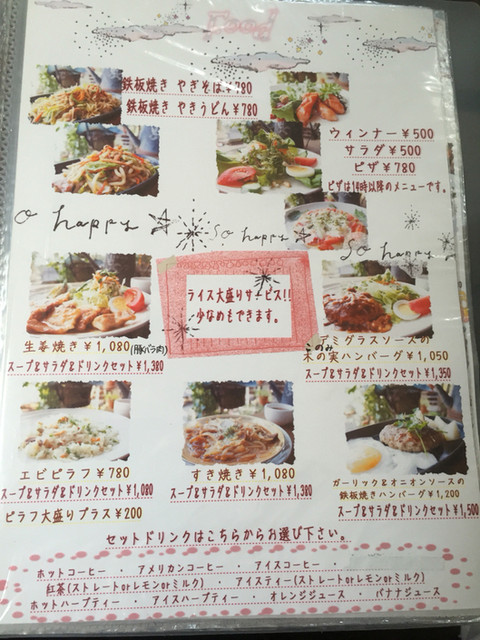 Food
鉄板焼き やきそば¥780
鉄板焼き やきうどん¥780
ウィンナー¥500
サラダ¥500
ピザ¥780
ピザは14時以降のメニューです。
o happy
So happy
So happy
ライス大盛りサービス!!
少なめもできます。
生姜焼き¥1,080(豚バラ肉)
スープ&サラダ&ドリンクセット¥1,380
デミグラスソースの
このみ
木の実ハンバーグ¥1,050
スープ&サラダ&ドリンクセット¥1,350
エビピラフ¥780
スープ&サラダ&ドリンクセット¥1,080
ピラフ大盛りプラス¥200
すき焼き¥1,080
スープ&サラダ&ドリンクセット¥1,380
ガーリック&オニオンソースの
鉄板焼きハンバーグ¥1,200
スープ&サラダ&ドリンクセット¥1,500
セットドリンクはこちらからお選び下さい。
ホットコーヒー ・ アメリカンコーヒー ・ アイスコーヒー ・
紅茶(ストレートorレモンorミルク) ・ アイスティー(ストレートorレモンorミルク)
ホットハーブティー ・ アイスハーブティー ・ オレンジジュース ・ バナナジュース